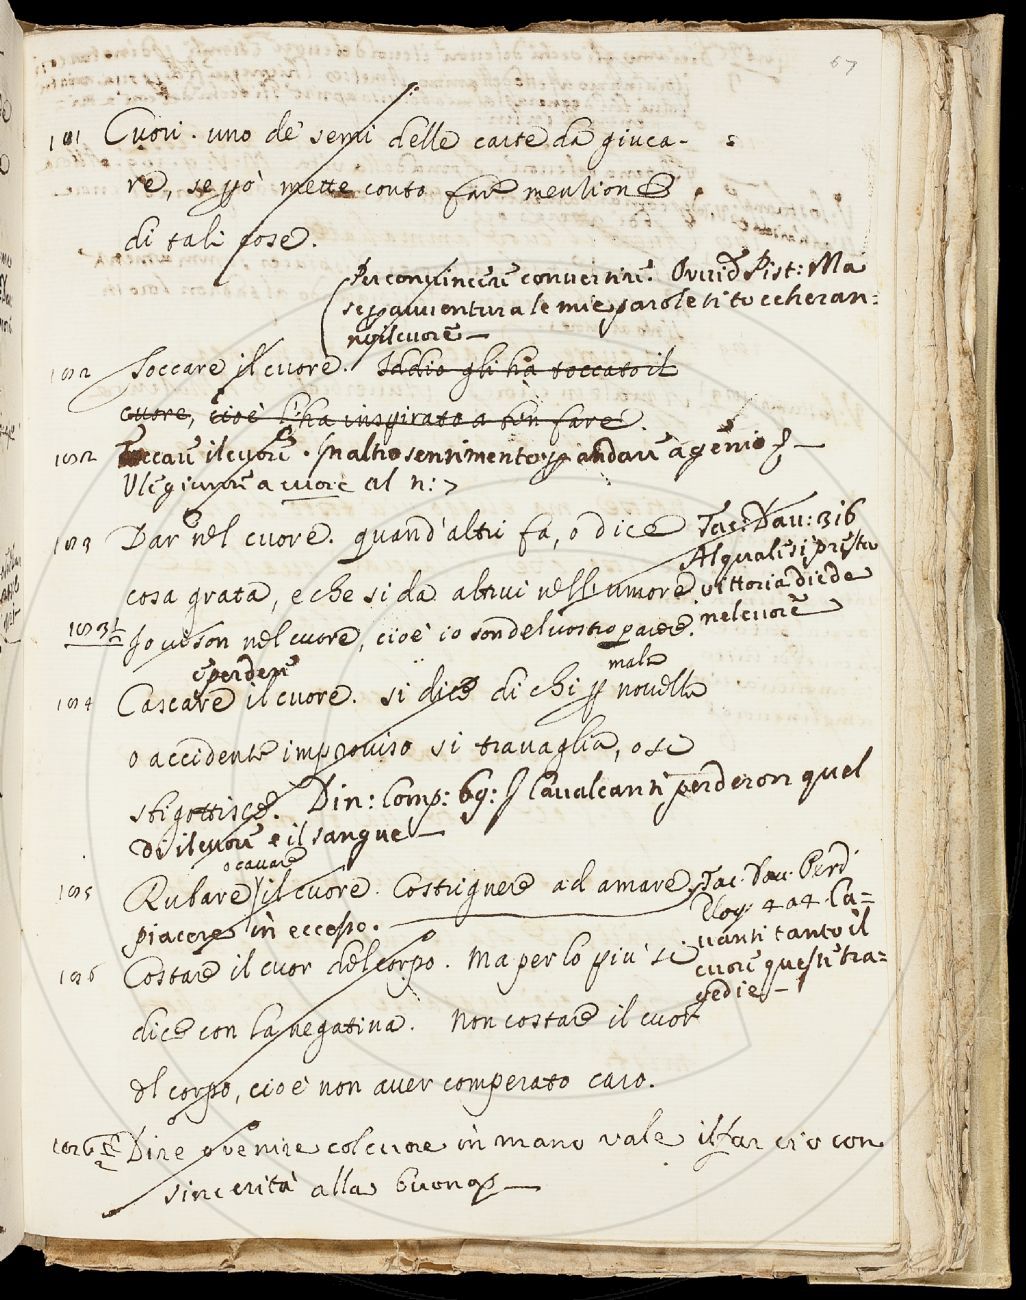 67
181 Cuori. uno de' semi delle carte da giuca-
re, se però mette conto fare mentione
di tali cose.
Per convincere convertire. Ovvid Pist: Ma
se per avventura le mie parole ti toccheran=
no il cuore —
182 Toccare il cuore. Iddio gli ha toccato il
cuore, cioè l'ha inspirato a ben fare.
182 Toccare il cuore. In altro sentimento per andare a genio
V leggiere a cuore al n: 7
183 Dar nel cuore. quand'altri fa, o dice
Tac: Dav: 316
Al quali si, presta
cosa grata, e che si da altrui nell'umore
vittoria diede
nel cuore
183 1/2 Io vi son nel cuore, cioè io son del vostro parere.
e perdere
184 Cascare il cuore. si dice di chi per mala novella
o accidente improviso si travaglia, o si
sbigottisce. Din: Comp: 69: I Cavalcanti perderon quel
dì il cuore e il sangue —
o cavare
185 Rubare il cuore. Costrignere ad amare,
Tac. Dav. Perd.
Eloq: 404. Ca=
piacere in eccesso.
vanti tanto il
cuore queste tra=
gedie —
186 Costare il cuor del corpo. Ma per lo più si
dice con la negativa. Non costare il cuor
del corpo, cioè non aver comperato caro.
186 1/2 Dire o venire col cuore in mano vale il far ciò con
sincerità alla buona —